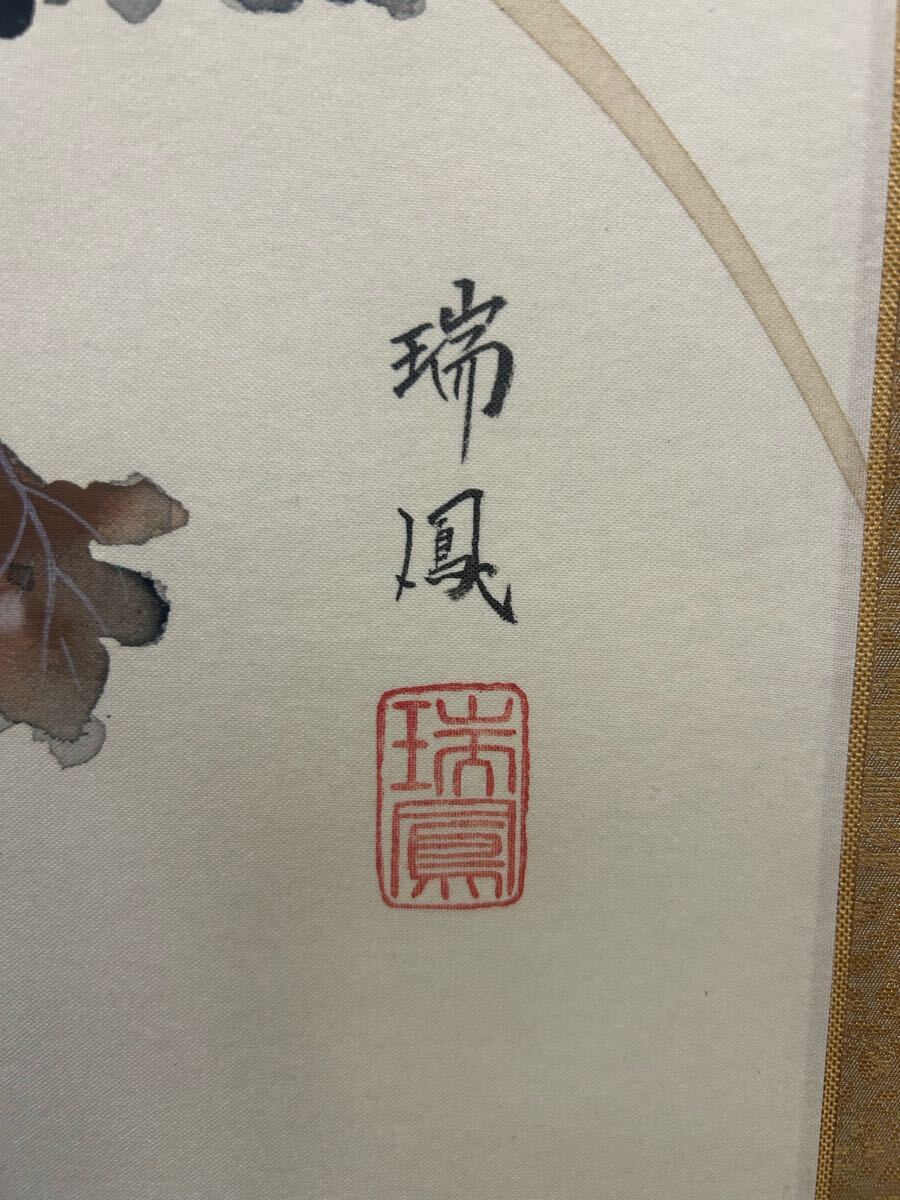 瑞鳳
瑞鳳